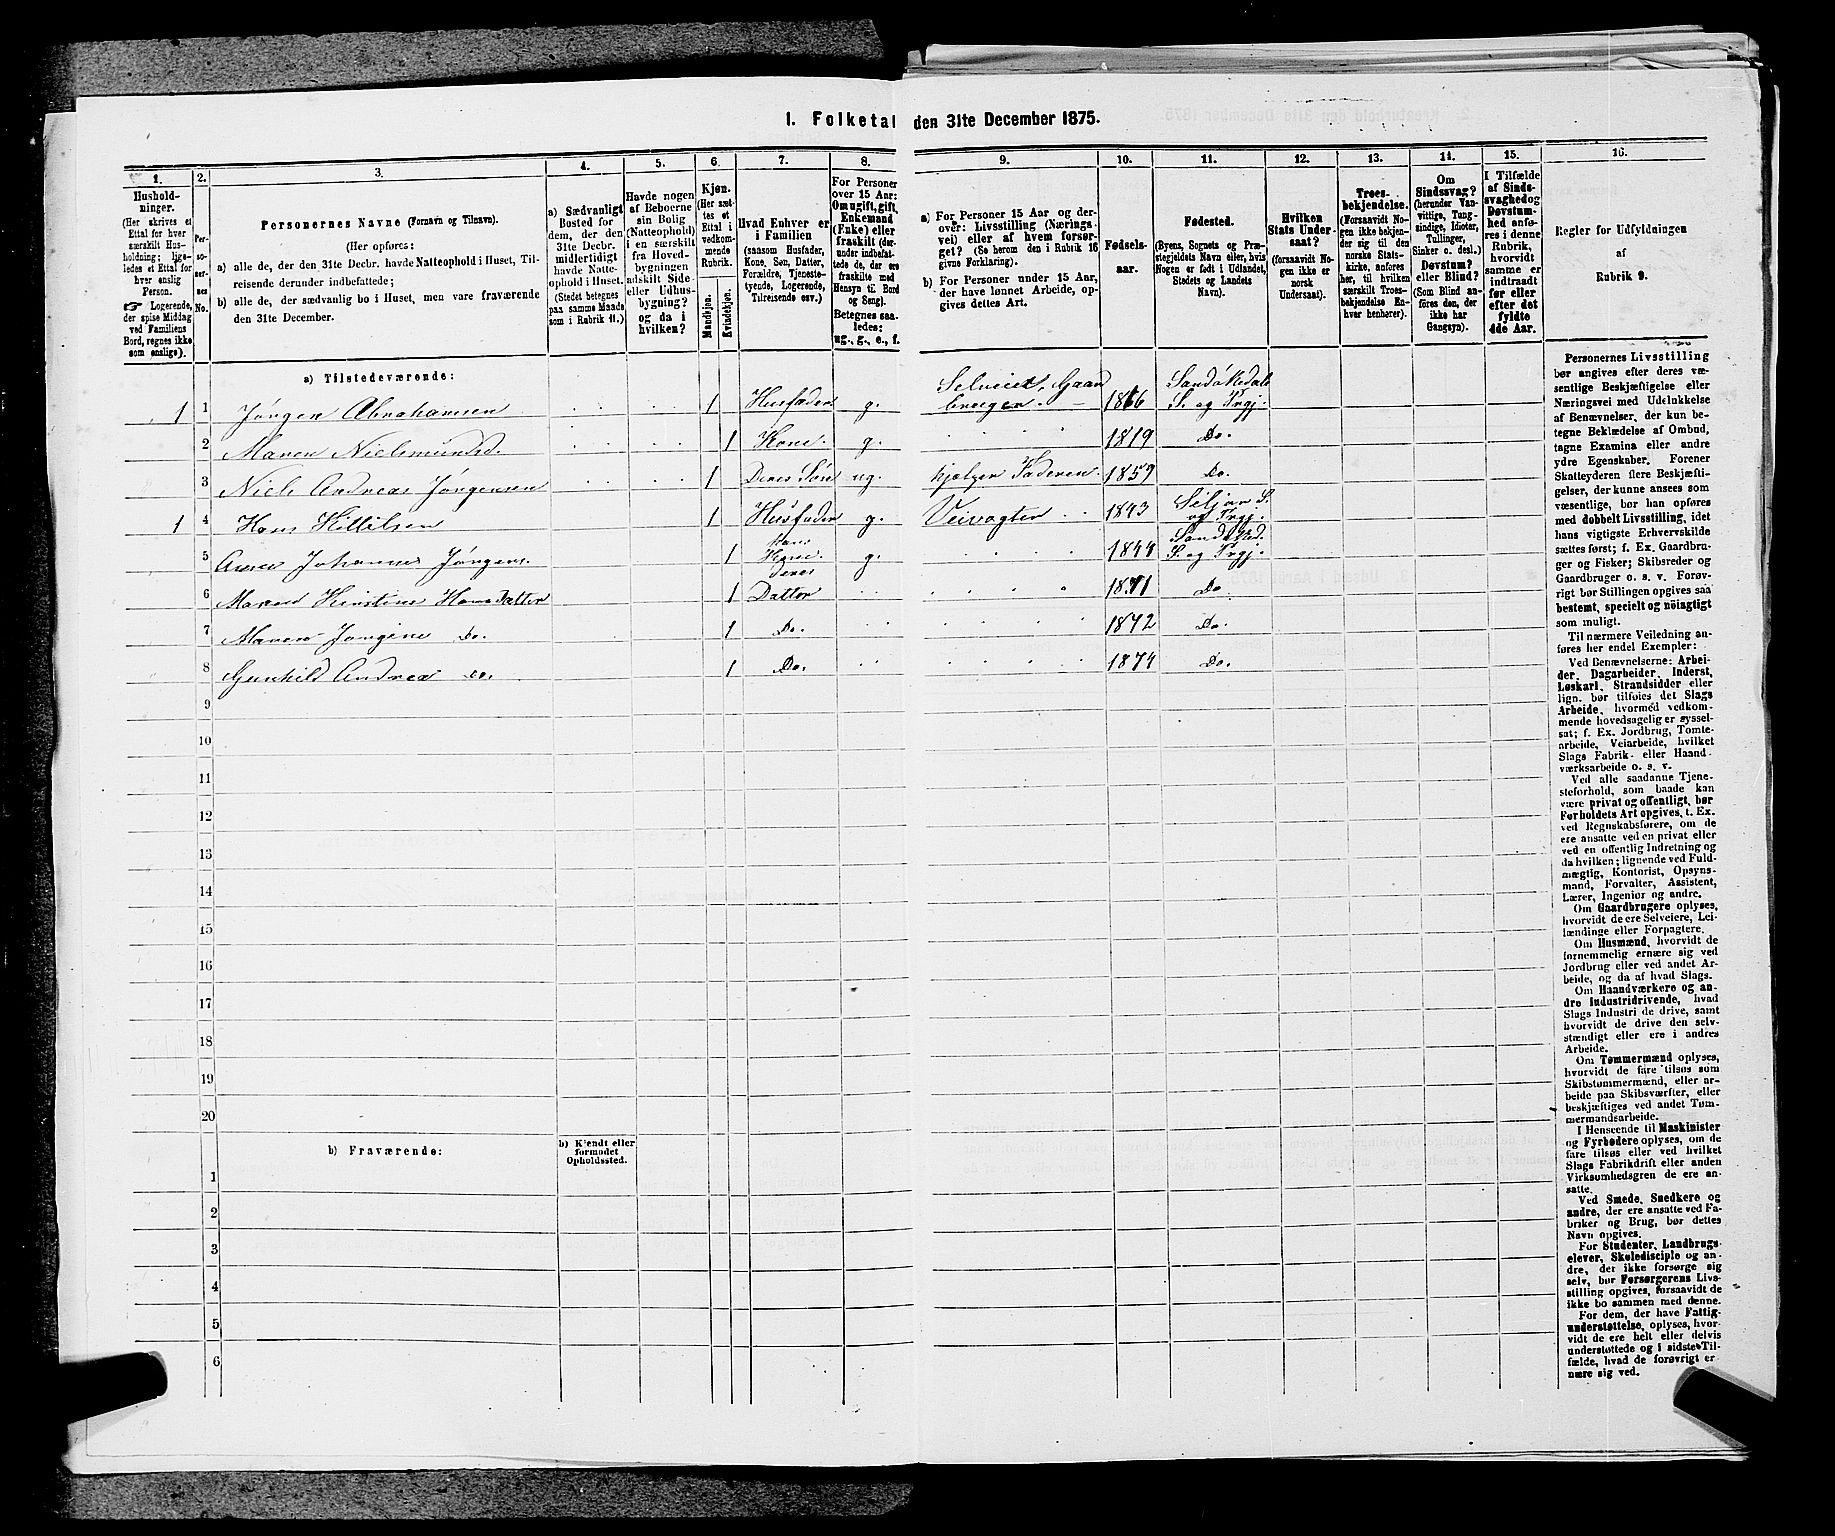 1. Folketal den 31te December 1875.
1.
2.
3.
4.
5.
6.
7.
8.
9.
10.
11.
12.
13.
14.
15.
16.
Hushold-
ninger.
(Her skrives et
Ettal for hver
særskilt Hus-
holdning; lige-
ledes et Ettal for
hver enslig
Person.
☞ Logerende,
der spise Middag
ved Familiens
Bord, regnes ikke
som enslige).
Per-
so-
ner-
nes
No.
Personernes Navne (Fornavn og Tilnavn).
(Her opføres:
a) alle de, der den 31te Decbr. havde Natteophold i Huset, Til-
reisende derunder indbefattede;
b) alle de, der sædvanlig bo i Huset, men vare fraværende
den 31te December.
a) Sædvanligt
Bosted for
dem, der den
31te Decbr.
midlertidigt
havde Natte-
ophold i Huset.
(Stedet betegnes
paa samme Maade
som i Rubrik 11.)
Havde nogen
af Beboerne
sin Bolig
(Natteophold)
i en særskilt
fra Hoved-
bygningen
adskilt Side-
eller Udhus-
bygning?
og da i
hvilken?
Kjøn.
(Her sæt-
tes et
Ettal i
vedkom-
mende
Rubrik.
Mandkjøn.
Kvindekjøn.
Hvad Enhver er
i Familien
(saasom Husfader,
Kone, Søn, Datter,
Forældre, Tjeneste-
tyende, Logerende,
Tilreisende osv.)
For Personer
over 15 Aar:
Om ugift, gift,
Enkemand
(Enke) eller
fraskilt (der-
under indbefat-
tede de, der ere
fraskilte med
Hensyn til Bord
og Seng).
Betegnes saa-
ledes:
ug., g., e., f.
a) For Personer 15 Aar og der-
over: Livsstilling (Nærings-
vei) eller af hvem forsør-
get? (Se herom den i Rubrik 16
givne Forklaring).
b) For Personer under 15 Aar,
der have lønnet Arbeide, op-
gives dettes Art.
Fødsels-
aar.
Fødested.
(Byens, Sognets og Præ-
stegjeldets Navn eller, hvis
Nogen er født i Udlandet,
Stedets og Landets
Navn).
Hvilken
Stats Under-
saat?
(forsaavidt No-
gen ikke er
norsk
Undersaat).
Troes-
bekjendelse.
(Forsaavidt No-
gen ikke bekjen-
der sig til den
norske Stats-
kirke, anføres
her, til hvilken
særskilt Troes-
bekjendelse En-
hver henhører).
Om
Sindssvag?
(herunder Van-
vittige, Tung-
sindige, Idioter,
Tullinger,
Sinker o. desl.)
Døvstum?
eller Blind?
(Som Blind an-
føres den, der
ikke har
Gangsyn).
I Tilfælde
af Sinds-
svaghed og
Døvstum-
hed anfø-
res i denne
Rubrik,
hvorvidt
samme er
indtraadt
før eller
efter det
fyldte
4de Aar.
Regler for Udfyldningen
af
Rubrik 9.
a) Tilstedeværende:
1 1 Jørgen Abrahamsen 1 Husfader g. Selveier, Gaardbruger. 1816 Sandøkedals S. og Prgj.
2 Maren Nielsmundsd. 1 Kone. g. 1819 Do.
3 Niels Andreas Jørgensen 1 Deres Søn ug. hjælper Faderen. 1859 Do.
1 4 Hans Kittilsen 1 Husfader g. Veivogter 1843 Siljon S. og Prgj.
5 Anne Johanne Jørgens. 1 Hans Kone. g. 1844 Sandøked. S. og Prgj.
6 Maren Kirstine Hansdatter 1 deres Datter 1871 Do
7 Maren Jørgine Do. 1 Do. 1872 Do.
8 Gunhild Andrea Do. 1 Do. 1874 Do.
9
10
11
12
13
14
15
16
17
18
19
20
b) Fraværende:
b) Kjendt eller
formodet
Opholdssted.
1
2
3
4
5
6
Personernes Livsstilling
bør angives efter deres væ-
sentlige Beskjæftigelse eller
Næringsvei med Udelukkelse
af Benævnelser, der kun be-
tegne Beklædelse af Ombud,
tagne Examina eller andre
ydre Egenskaber. Forener
Skatteyderen flere Beskjæfti-
gelser, der kunne ansees som
væsentlige, bør han opføres
med dobbelt Livsstilling, idet
hans vigtigste Erhvervskilde
sættes først; f. Ex. Gaardbru-
ger og Fisker; Skibsreder og
Gaardbruger o. s. v. Forøv-
rigt bør Stillingen opgives saa
bestemt, specielt og nöiagtigt
som muligt.
Til nærmere Veiledning an-
føres her endel Exempler:
Ved Benævnelserne: Arbei-
der, Dagarbeider, Inderst,
Løskarl, Strandsidder eller
lign. bør tilføies det Slags
Arbeide, hvormed vedkom-
mende hovedsagelig er syssel-
sat; f. Ex. Jordbrug, Tomte-
arbeide, Veiarbeide, hvilket
Slags Fabrik- eller Haand-
værksarbeide o. s. v.
Ved alle saadanne Tjene-
steforhold, som baade kan
være privat og offentligt, bør
Forholdets Art opgives, t. Ex.
ved Regnskabsførere, om de
ere ansatte ved en privat eller
ved en offentlig Indretning og
da hvilken; lignende ved Fuld-
mægtig, Kontorist, Opsyns-
mand, Forvalter, Assistent,
Lærer, Ingeniør og andre.
Om Gaardbrugere oplyses,
hvorvidt de ere Selveiere, Lei-
lændinge eller Forpagtere.
Om Husmænd, hvorvidt de
fornemmelig ernære sig ved
Jordbrug eller ved andet Ar-
beide, og da af hvad Slags.
Om Haandværkere og an-
dre Industridrivende, hvad
Slags Industri de drive, samt
hvorvidt de drive den selv-
stændigt eller ere i andres
Arbeide.
Om Tømmermænd oplyses,
hvorvidt de fare tilsøs som
Skibstømmermænd, eller ar-
beide paa Skibsværfter, eller
beskjæftiges ved andet Tøm-
mermandsarbeide.
I Henseende til Maskinister
og Fyrbødere oplyses, om de
fare tilsøs eller ved hvilket
Slags Fabrikdrift eller anden
Virksomhedsgren de ere an-
satte.
Ved Smede, Snedkere og
andre, der ere ansatte ved Fa-
briker og Brug, bør dettes
Navn opgives.
For Studenter, Landbrugs-
elever, Skoledisciple og an-
dre, der ikke forsørge sig
selv, bør Forsørgerens Livs-
stilling opgives, forsaavidt de
ikke bo sammen med denne.
For dem, der have Fattig-
understøttelse, oplyses, hvor-
vidt de ere helt eller delvis
understøttede og i sidste Til-
fælde, hvad de forøvrigt er-
nære sig ved.